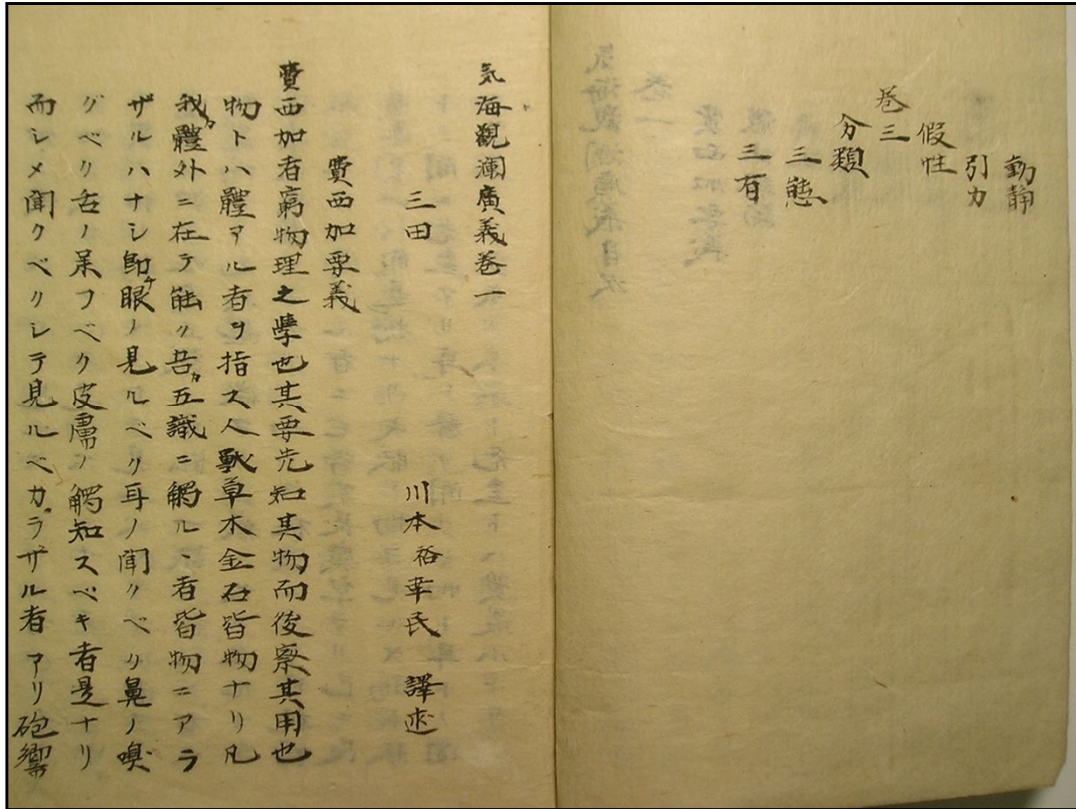 動静
引力
假性
巻三
分類
三態
三有
気海観瀾廣義巻一
三田 川本裕幸民 譯述
費西加要義
費西加者窮物理之學也其要先知其物而後察其用也
物トハ體アル者ヲ指ス人獣草木金石皆物ナリ凡
我カ體外ニ在テ能ク吾カ五識ニ觸ルヽ者皆物ニアラ
ザルハナシ即チ眼ノ見ルベク耳ノ聞クベク鼻ノ嗅
グベク舌ノ味フベク皮膚ノ觸知スベキ者是ナリ
而シメ聞クベクシテ見ルベカラザル者アリ砲響ノ